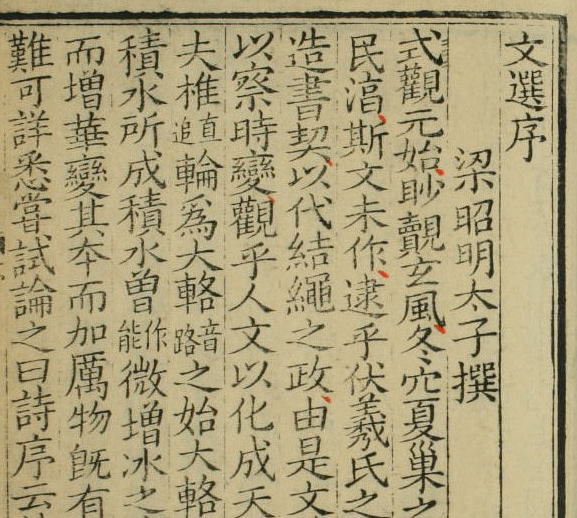 文選序
梁昭明太子撰
式觀元始眇覿玄風冬穴夏巢之
民湻斯文未作逮乎伏羲氏之
造書契以代結繩之政由是文
以察時變觀乎人文以化成天
夫椎直追輪爲大輅音路之始大輅
積水所成積水曽作能微增冰之
而增華變其夲而加厲物旣有
難可詳悉嘗試論之曰詩序云